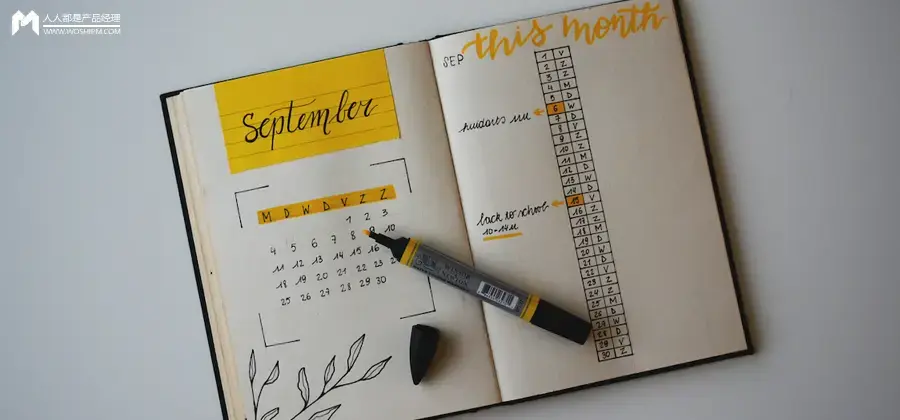 人人都是产品经理
WWW.WOSHIPM.COM
September
M D W D V Z Z
1 2 3
4 5 6 7 8 9 10
11 12 13 14 15 16
18 19 20 21 22 23
25 26 27 28 29 30
this month
SEP
1 V
2 Z
3 Z
4 M
5 D
6 W
7 D
8 V
9 Z
10 Z
11 M
12 D
13 W
14 D
back to school 15 V
10-14u
16 Z
17 Z
18 M
19 D
20 W
21 D
22 V
23 Z
24 Z
25 M
26 D
28 D
29 V
30 Z